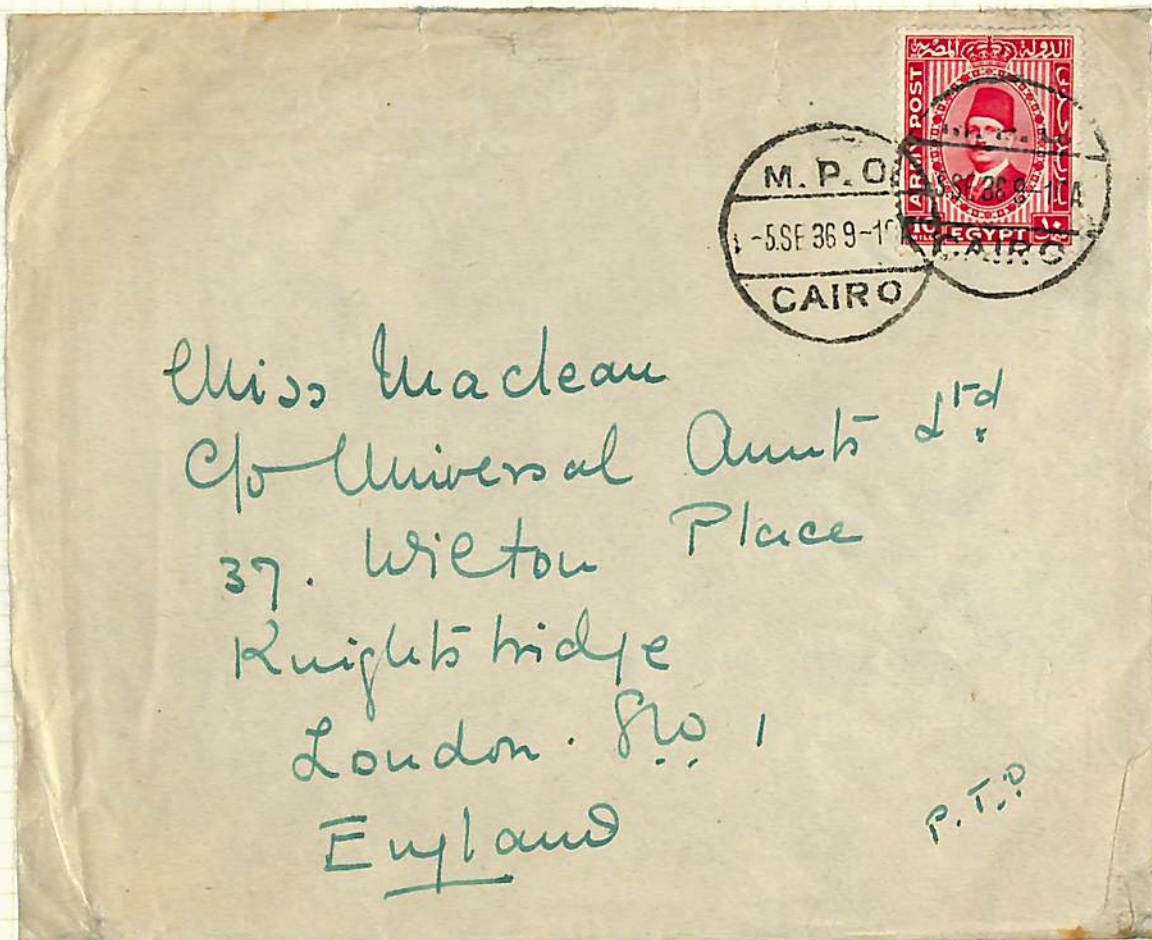 الدولة المصرية
ARMY POST
10 EGYPT ١٠
MILLS
M. P. O.
-5.SE 36 9-10
CAIRO
SE 36 9-10A
CAIRO
Miss Maclean
C/o Universal Aunts Ltd.
37. Wilton Place
Knightsbridge
London. SW 1
England
P.T.O